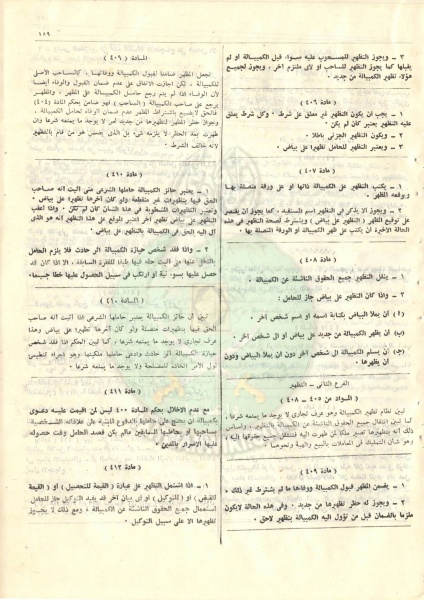 ١٨٩
٣ ـ ويجوز التظهير للمسحوب عليه سواء، قبل الكمبيالة او لم
يقبلها كما يجوز التظهير للساحب او لاى ملتزم آخر، ويجوز لجميع
هؤلاء تظهير الكمبيالة من جديد .
( مادة ٤٠٦ )
١ ـ يجب ان يكون التظهير غير معلق على شرط . وكل شرط يعلق
عليه التظهير يعتبر كأن لم يكن .
٢ ـ ويكون التظهير الجزئى باطلا .
٣ ـ ويعتبر التظهير للحامل تظهيرا على بياض .
( مادة ٤٠٧ )
١ ـ يكتب التظهير على الكمبيالة ذاتها او على ورقة متصلة بها
ويوقعه المظهر .
٢ ـ ويجوز ألا يذكر فى التظهير اسم المستفيد، كما يجوز ان يقتصر
على توقيع المظهر ( على بياض ) ويشترط لصحة التظهير فى هذه
الحالة الاخيرة ان يكتب على ظهر الكمبيالة او الورقة المتصلة بها .
( مادة ٤٠٨ )
١ ـ ينقل التظهير جميع الحقوق الناشئة عن الكمبيالة .
٢ ـ واذا كان التظهير على بياض جاز للحامل :
( أ ) ان يملأ البياض بكتابة اسمه او اسم شخص آخر .
(ب) ان يظهر الكمبيالة من جديد على بياض او الى شخص آخر .
(جـ) ان يسلم الكمبيالة الى شخص آخر دون ان يملأ البياض ودون
ان يظهرها .
الفرع الثانى ـ التظهير
المواد من ٤٠٥ ـ ٤٠٨
تبين نظام تظهير الكمبيالة وهو عرف تجارى لا يوجد ما يمنعه شرعا ،
كما تبين انتقال جميع الحقوق الناشئة عن الكمبيالة بالتظهير ، واساس
ذلك انه بتظهيرها تعتبر ملكا لمن ظهرت اليه فتنتقل جميع حقوقها اليه ،
وهو شأن التمليك فى المعاملات بالبيع والهبة ونحوهما .
( مادة ٤٠٩ )
١ ـ يضمن المظهر قبول الكمبيالة ووفاءها ما لم يشترط غير ذلك .
٢ ـ ويجوز له حظر تظهيرها من جديد . وفى هذه الحالة لايكون
ملزما بالضمان قبل من تؤول اليه الكمبيالة بتظهير لاحق .
المادة ( ٤٠٩ )
تجعل المظهر ضامنا لقبول الكمبيالة ووفائها ، كالساحب الاصلى
للكمبيالة ، لكن اجازت الاتفاق على عدم ضمان القبول والوفاء ايضا
لأن الوفاء اذا لم يتم رجع حامل الكمبيالة على المظهر ، والمظهر
يرجع على صاحب الكمبيالة ( الساحب ) فهو ضامن بحكم المادة (٤٠٤)
فالحق لا يضيع باشتراط المظهر عدم ضمان الوفاء لحامل الكمبيالة .
وجواز حظر المظهر لتظهيرها من جديد امر لا يوجد ما يمنعه شرعا وان
ظهرت بعد الحظر لا يلزمه شىء بل الذى يضمن هو من قام بالتظهير
( مادة ٤١٠ )
١ ـ يعتبر حائز الكمبيالة حاملها الشرعى متى اثبت انه صاحب
الحق فيها بتظهيرات غير منقطعة ولو كان آخرها تظهيرا على بياض .
وتعتبر التظهيرات المشطوبة فى هذا الشأن كأن لم تكن . واذا اعقب
التظهير على بياض تظهير آخر اعتبر الموقع على هذا التظهير انه هو الذى
آل اليه الحق فى الكمبيالة بالتظهير على بياض .
٢ ـ واذا فقد شخص حيازة الكمبيالة اثر حادث فلا يلزم الحامل
بالتخلى عنها متى اثبت حقه فيها طبقا للفقرة السابقة ، الا اذا كان قد
حصل عليها بسوء نية او ارتكب فى سبيل الحصول عليها خطأ جسيما .
المادة ( ٤١٠ )
تبين أن حائز الكمبيالة يعتبر حاملها الشرعى اذا اثبت انه صاحب
الحق فيها بتظهيرات متصلة ولو كان آخرها تظهيرا على بياض وهذا
عرف تجارى لا يوجد ما يمنعه شرعا ، كما تبين الحكم اذا فقد شخص
حيازة الكمبيالة اثر حادث وادعى حاملها ملكيتها وهو اجراء تنظيمى
لولى الامر اتخاذه للمصلحة ولا يوجد ما يمنعه شرعا .
( مادة ٤١١ )
مع عدم الاخلال بحكم المادة ٤٠٠ ليس لمن اقيمت عليه دعوى
بكمبيالة ان يحتج على حاملها بالدفوع المبنية على علاقاته الشخصية
بساحبها او بحامليها السابقين مالم يكن قصد الحامل وقت حصوله
عليها الاضرار بالمدين .
( مادة ٤١٢ )
١ ـ اذا اشتمل التظهير على عبارة ( القيمة للتحصيل ) أو ( القيمة
للقبض ) أو ( للتوكيل ) او اى بيان آخر يفيد التوكيل جاز للحامل
استعمال جميع الحقوق الناشئة عن الكمبيالة ، ومع ذلك لا يجوز له
تظهيرها الا على سبيل التوكيل .